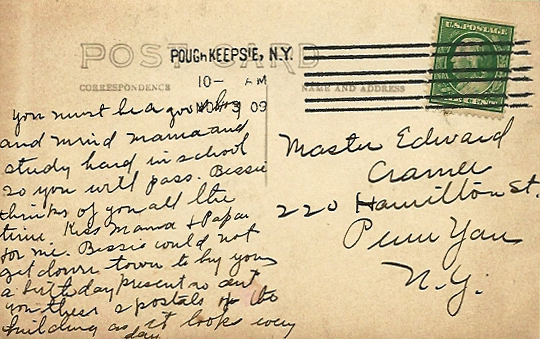 POST CARD
POUGHKEEPSIE, N.Y.
10- AM
NOV 3 09
CORRESPONDENCE
NAME AND ADDRESS
U.S. POSTAGE
you must be a good boy
and mind mama and
study hard in school
so you will pass. Bessie
thinks of you all the
time. Kiss Mama & Papa
for me. Bessie could not
get down town to by you
a birthday present so sent
you these 2 postals of the
building as it looks every
day
Master Edward
Cramer
220 Hamilton St.
Penn Yan
N.Y.